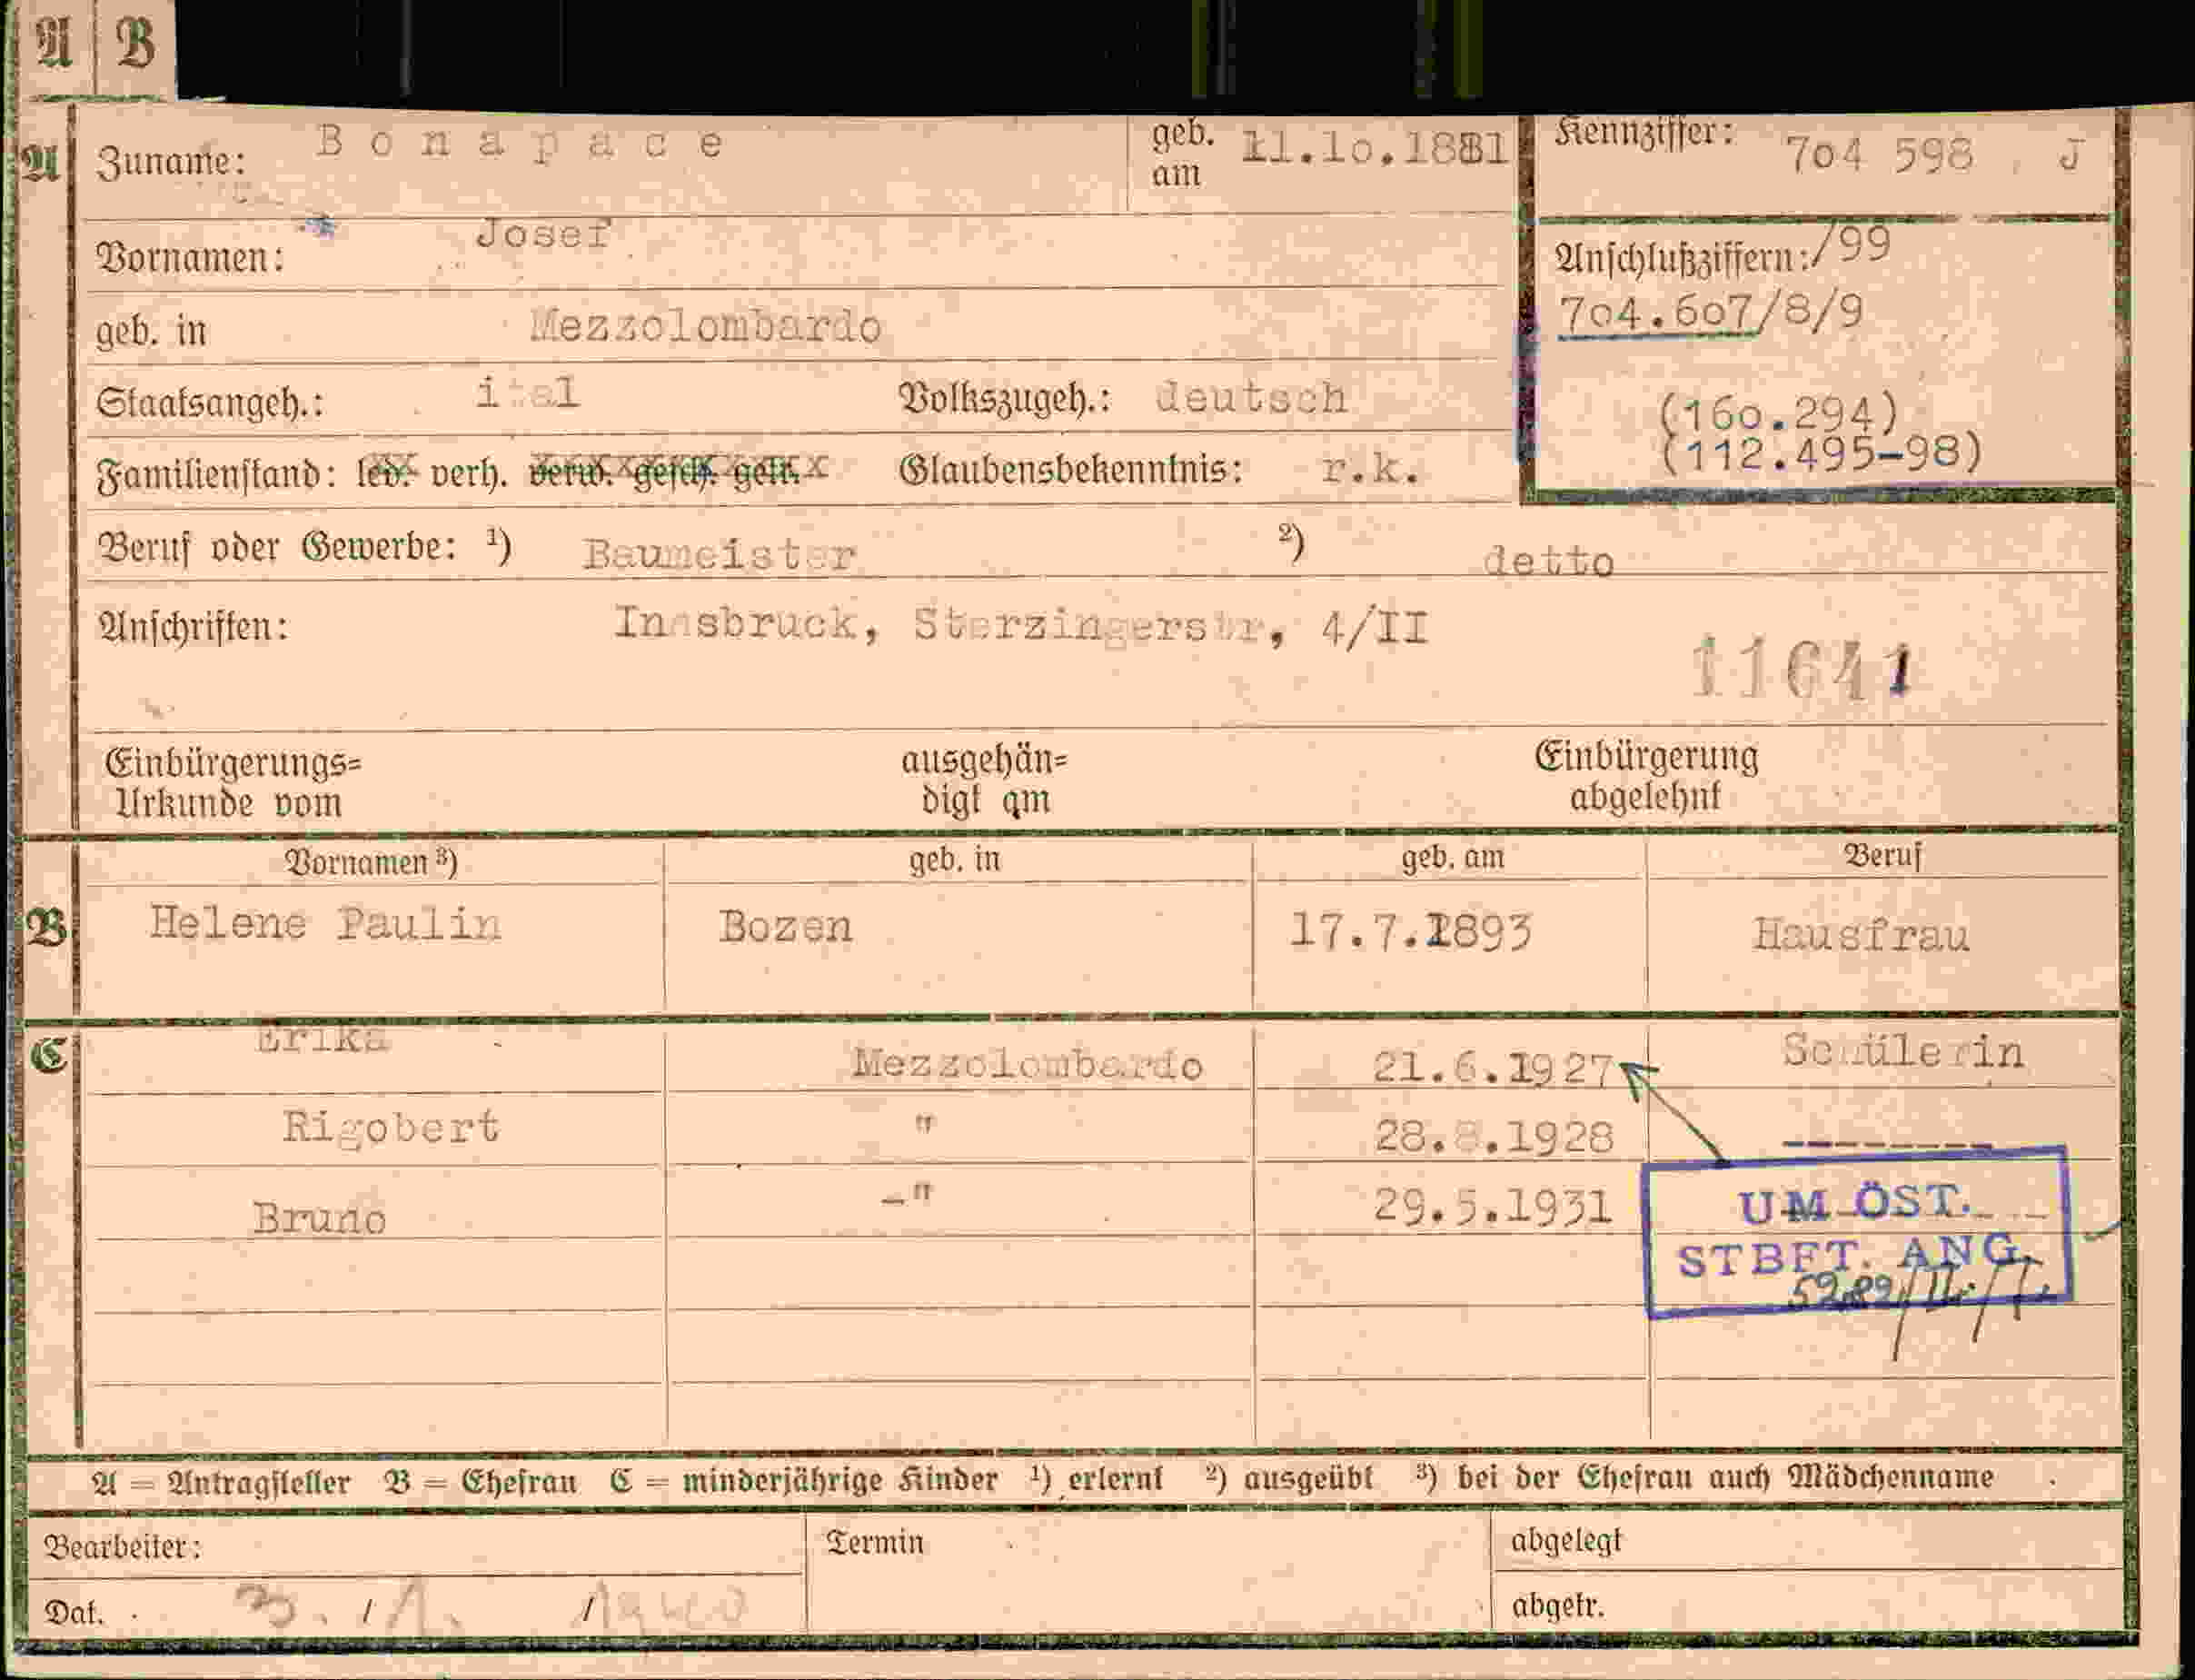 A B
A Zuname: Bonapace geb. am 11.10.1881 Kennziffer: 704 598 J
Vornamen: Josef Anschlußziffern: /99
704.607/8/9
geb. in Mezzolombardo
Staatsangeh.: ital Volkszugeh.: deutsch (160.294)
(112.495-98)
Familienstand: led. verh. verw. gesch. getr. Glaubensbekenntnis: r.k.
Beruf oder Gewerbe: 1) Baumeister 2) detto
Anschriften: Innsbruck, Sterzingerstr, 4/II
11641
Einbürgerungs= Urkunde vom ausgehän= digt am Einbürgerung abgelehnt
Vornamen 3) geb. in geb. am Beruf
B Helene Paulin Bozen 17.7.1893 Hausfrau
C Erika Mezzolombardo 21.6.1927 Schülerin
Rigobert " 28.8.1928 -------
Bruno -" 29.5.1931
UM ÖST.
STBFT. ANG.
A = Antragsteller B = Ehefrau C = minderjährige Kinder 1) erlernt 2) ausgeübt 3) bei der Ehefrau auch Mädchenname
Bearbeiter: Termin abgelegt
Dat. 3. / 1. / 1940 abgetr.